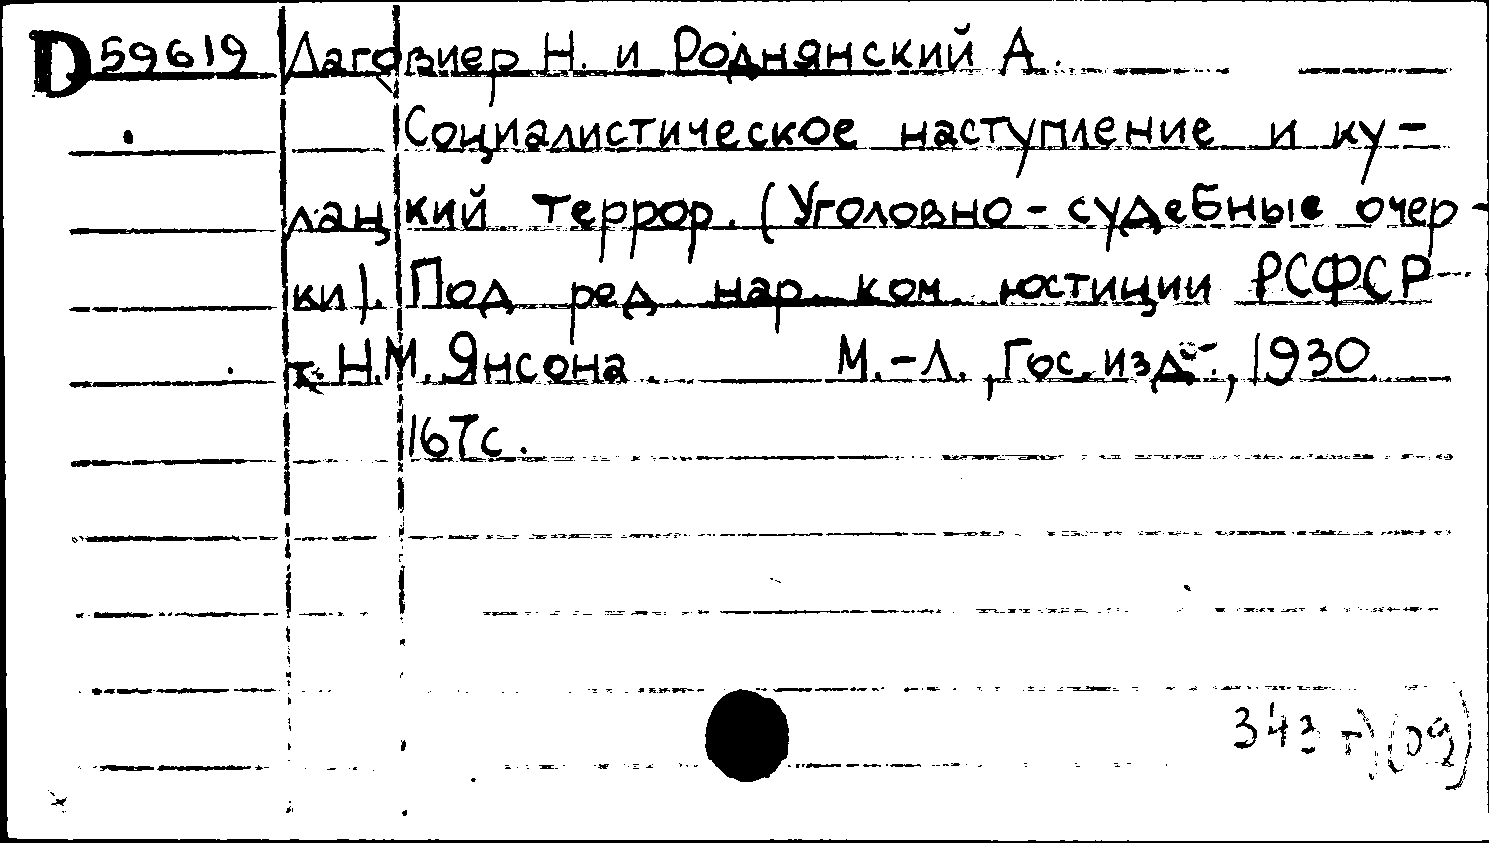 D 59619 Лаговиер Н. и Роднянский А.
Социалистическое наступление и ку-
лацкий террор. (Уголовно-судебные очер-
ки). Под ред. нар. ком. юстиции РСФСР
т. Н.М. Янсона М.-Л., Гос. изд-, 1930
167с.
343 т)(09)